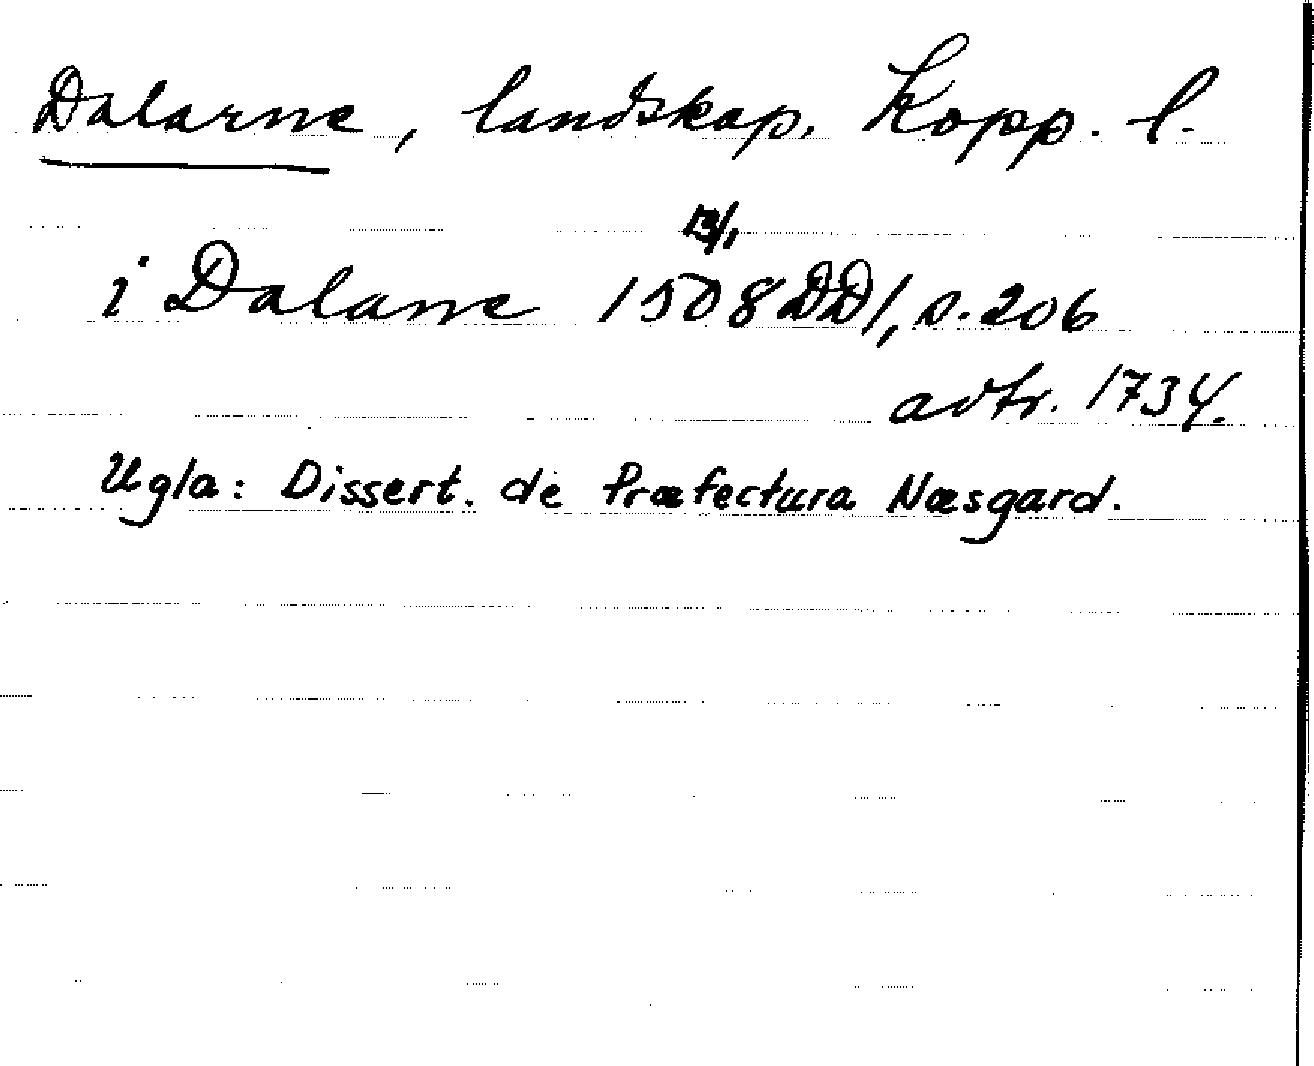 Dalarne, landskap. Kopp. l.
i Dalarne 1508 13/1 DD/, s. 206
avtr. 1734.
Ugla: Dissert. de Præfectura Næsgard.